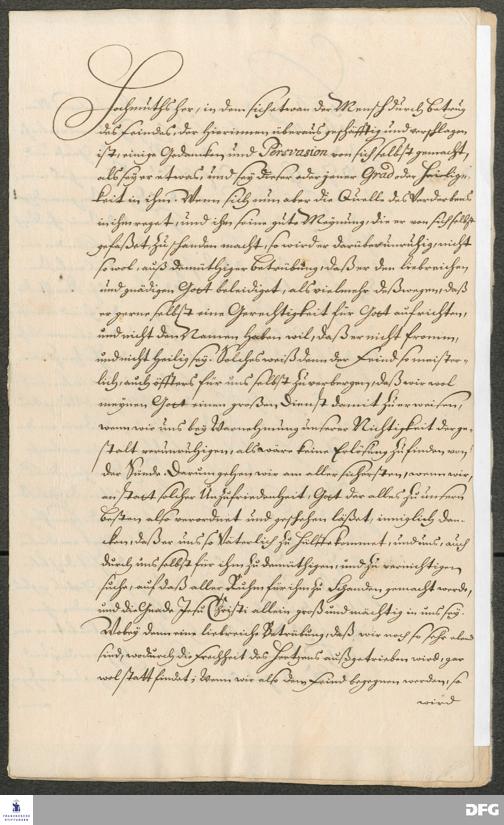 Hochmuths her, in dem sich etwan der Mensch durch Betrug
des Feindes, der hierinnen überaus geschäfftig und verschlagen
ist, einige Gedancken und Persvasion von sich selbst gemacht,
als sey er etwas, und sey diese oder jener Grad oder Heilig-
keit in ihm. Wenn sich nun aber die Quelle des Verderbens
in ihm reget, und ihm seine gute Meynung, die er von sich selbst
gefasset, zu schanden macht, so wird er darüber unruhig, nicht
so wol, auß demüthiger Betrübung, daß er den liebreichen
und gnädigen Gott beleidiget, als vielmehr deßwegen, daß
er gerne selbst eine Gerechtigkeit für Gott aufrichten,
und nicht den Namen haben wil, daß er nicht fromm,
und nicht heilig sey. Solches weiß denn der Feind so meister-
lich, auch öffters für uns selbst zu verbergen, daß wir wol
meynen Gott einen großen Dienst damit zu erweisen,
wenn wir uns bey Vernehmung unserer Nichtigkeit derge-
stalt verunruhigen, als wäre keine Erlösung zu finden von
der Sünde. Darum gehen wir am aller sichersten, wenn wir,
an statt solcher Unzufriedenheit, Gott der alles zu unserm
besten also verordnet und geschehen läßet, inniglich dan-
cken, daß er uns so Väterlich zu Hülffe kommet, und uns, auch
durch uns selbst für ihm zu demüthigen, und zu vernichtigen
suche, auf daß aller Ruhm für ihm zu schanden gemacht werde,
und die Gnade Jesu Christi allein groß und mächtig in uns sey.
Wobey denn eine liebreiche Betrübung, daß wir noch so sehr elend
sind, wodurch die Frechheit des Hertzens außgetrieben wird, gar
wol statt findet; Wenn wir also dem Feind begegnen werden, so
wird
FRANCKESCHE
STIFTUNGEN
DFG